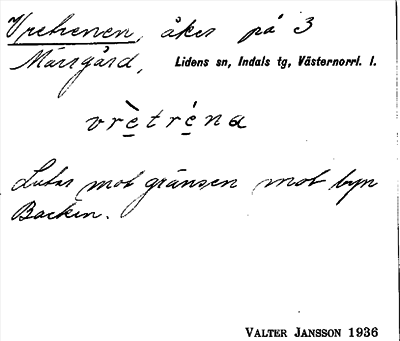 Vretrenen, åker på 3
Mårsgård, Lidens sn, Indals tg, Västernorrl. l.
vrètréna
Lutar mot gränsen mot byn
Backen.
VALTER JANSSON 1936